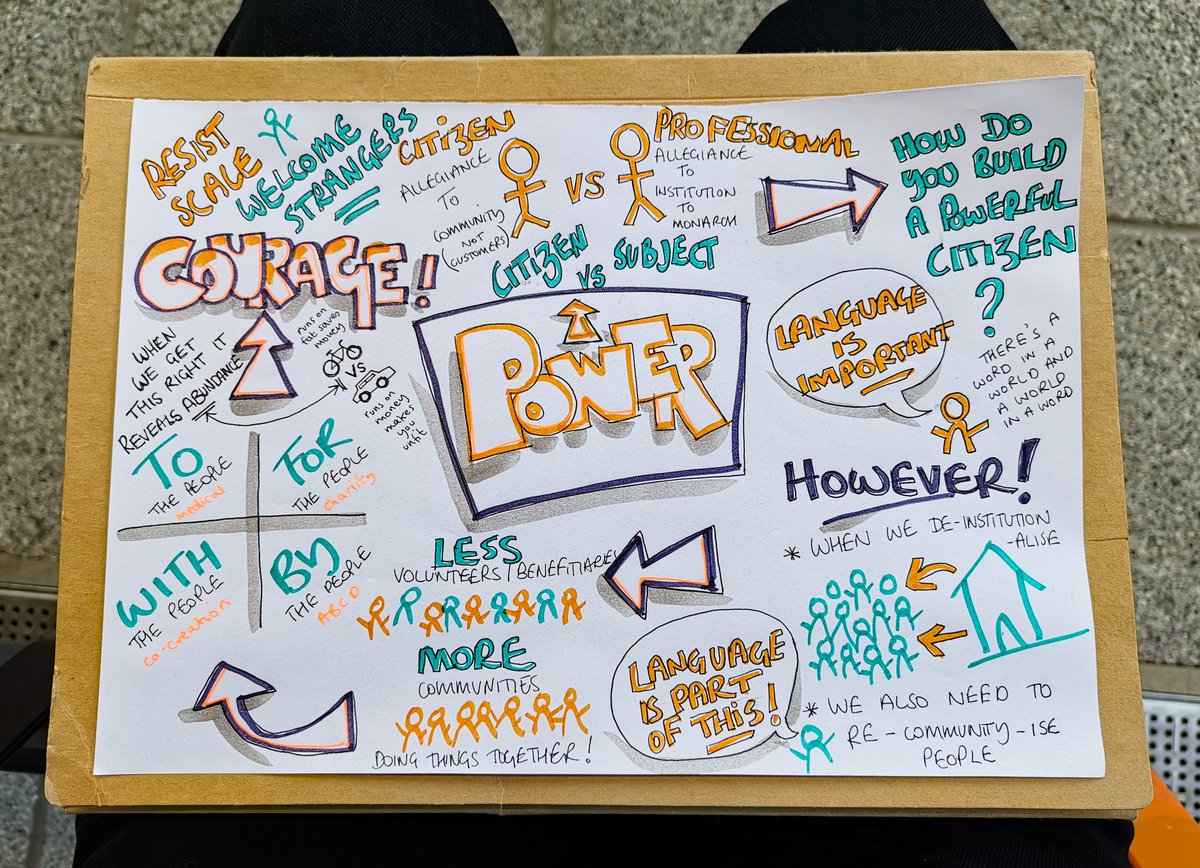 RESIST
SCALE
WELCOME
STRANGERS
CITIZEN
ALLEGIANCE
TO
COMMUNITY
(NOT
CUSTOMERS)
VS
PROFESSIONAL
ALLEGIANCE
TO
INSTITUTION
TO
MONARCH
CITIZEN
VS
SUBJECT
HOW DO
YOU BUILD
A POWERFUL
CITIZEN
?
COURAGE!
POWER
LANGUAGE
IS
IMPORTANT
THERE'S A
WORD IN A
WORLD AND
A WORLD
IN A WORD
WHEN
WE GET
THIS RIGHT IT
REVEALS ABUNDANCE
runs on
fat saves
money
VS
runs on
money
makes
you
unfit
TO
THE PEOPLE
medical
FOR
THE PEOPLE
charity
WITH
THE PEOPLE
co-creation
BY
THE PEOPLE
ABCD
HOWEVER!
* WHEN WE DE-INSTITUTION
-ALISE
* WE ALSO NEED TO
RE-COMMUNITY-ISE
PEOPLE
LANGUAGE
IS PART
OF THIS!
LESS
VOLUNTEERS/BENEFITIARIES
MORE
COMMUNITIES
DOING THINGS TOGETHER!